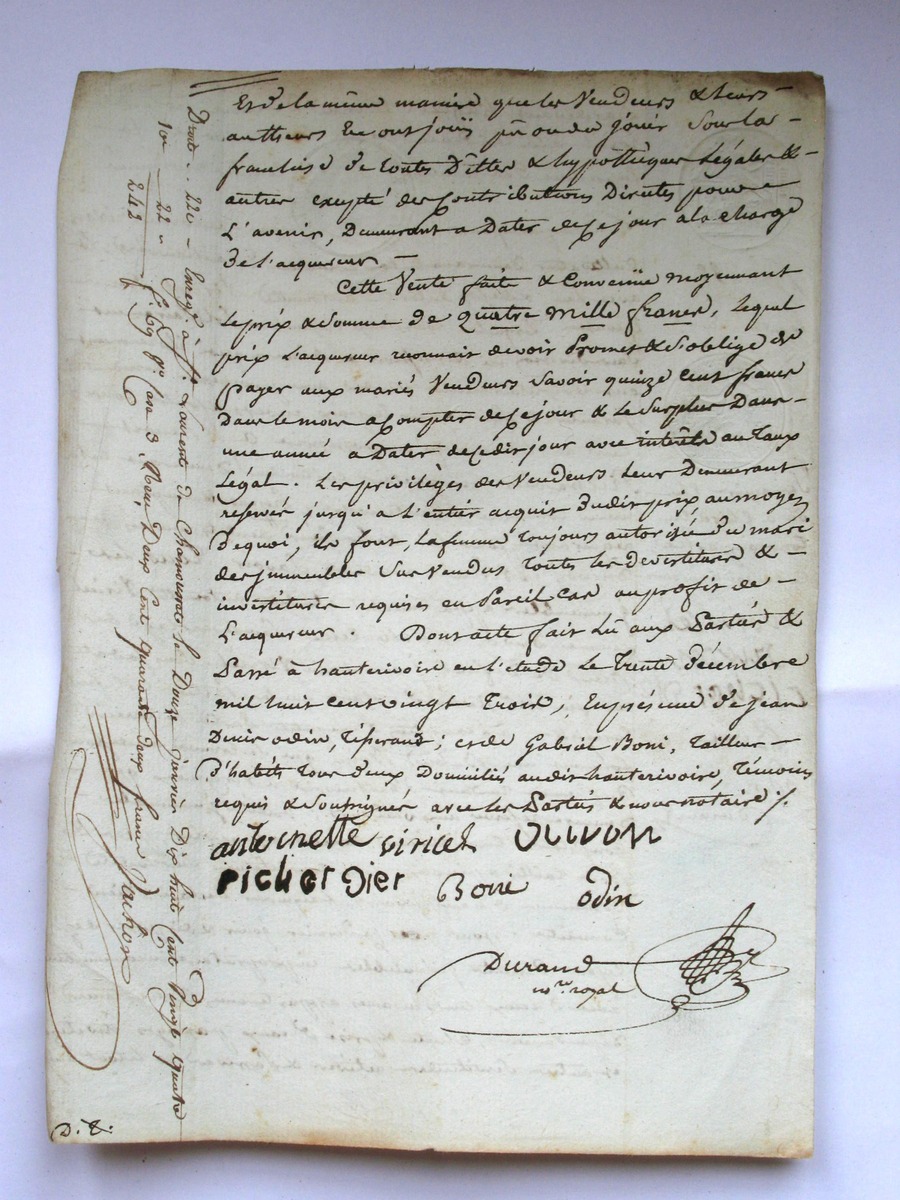 Et de la même manière que les Vendeurs & leurs
autheurs en ont jouis pû ou du jouir sous la
franchise de toutes Dettes & hypothèques Légales &
autres excepté des Contributions Directes pour
L'avenir, Demeurant a Dater de ce jour a la charge
de l'acquereur —
Cette Vente faite & Convenüe moyennant
Le prix & Somme de quatre mille francs, Lequel
prix L'acquereur reconnait devoir Promet & S'oblige de
payer aux mariés Vendeurs Savoir quinze cent francs
Dans le mois a Compter de ce jour & Le Surplus Dans
une année a Dater de ce dit jour avec intérêts au Taux
Légal. Les privilèges des Vendeurs Leur Demeurant
reservés jusqu'a L'entier acquit dudit prix, au moyen
De quoi, ils font, La femme Toujours autorisée du mari
des immeubles Sus Vendus Toutes Les Devestitures &
investitures requises en Pareil Cas au profit de
L'acquereur. Dont acte fait Lû aux Parties &
Passé à hauterivoire en L'etude Le Trente Décembre
mil huit cent vingt Trois, En présence de jean
Denis odin, Tisserand; et de Gabriel Boni, Tailleur
d'habits Tous deux Domiciliés au dit hauterivoire, Témoins
requis & Soussignés avec les Parties & nous notaire ./.
antoinette viricel
picher Dier Boni odin
Durand
no.re royal
Droit .. 220 - Enreg.é à S.t Laurent de Chamousset le Douze janvier Dix huit Cent Vingt Quatre
10e 22 " f.o 69 v.o Case 3, Reçu Deux Cent quarante deux francs Vachon
242
D. &.